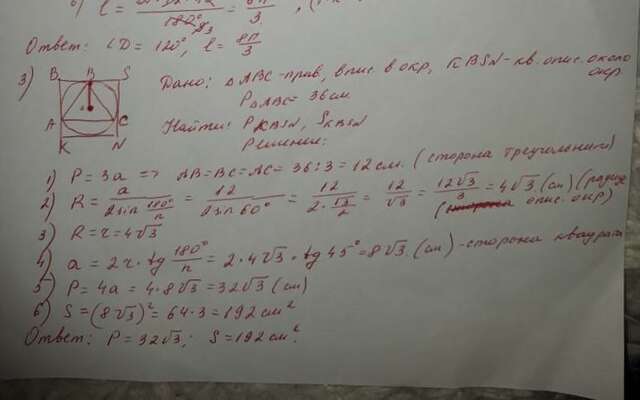 б) l =
180° 3 = 3
Ответ: ∠D = 120°, l = 8π/3
3) B B S
A C
K N
Дано: △ABC - прав, впис. в окр, KBSN - кв. опис. около окр
P△ABC = 36 см
Найти: PKBSN, SKBSN
Решение:
1) P = 3a => AB = BC = AC = 36 : 3 = 12 см. (сторона треугольника)
2) R = a/(2 sin 180°/n) = 12/(2 sin 60°) = 12/(2 · √3/2) = 12/√3 = 12√3/3 = 4√3 (см) (радиус опис. окр)
3) R = r = 4√3
4) a = 2r · tg 180°/n = 2 · 4√3 · tg 45° = 8√3 (см) - сторона квадрата
5) P = 4a = 4 · 8√3 = 32√3 (см)
6) S = (8√3)² = 64 · 3 = 192 см²
Ответ: P = 32√3; S = 192 см².